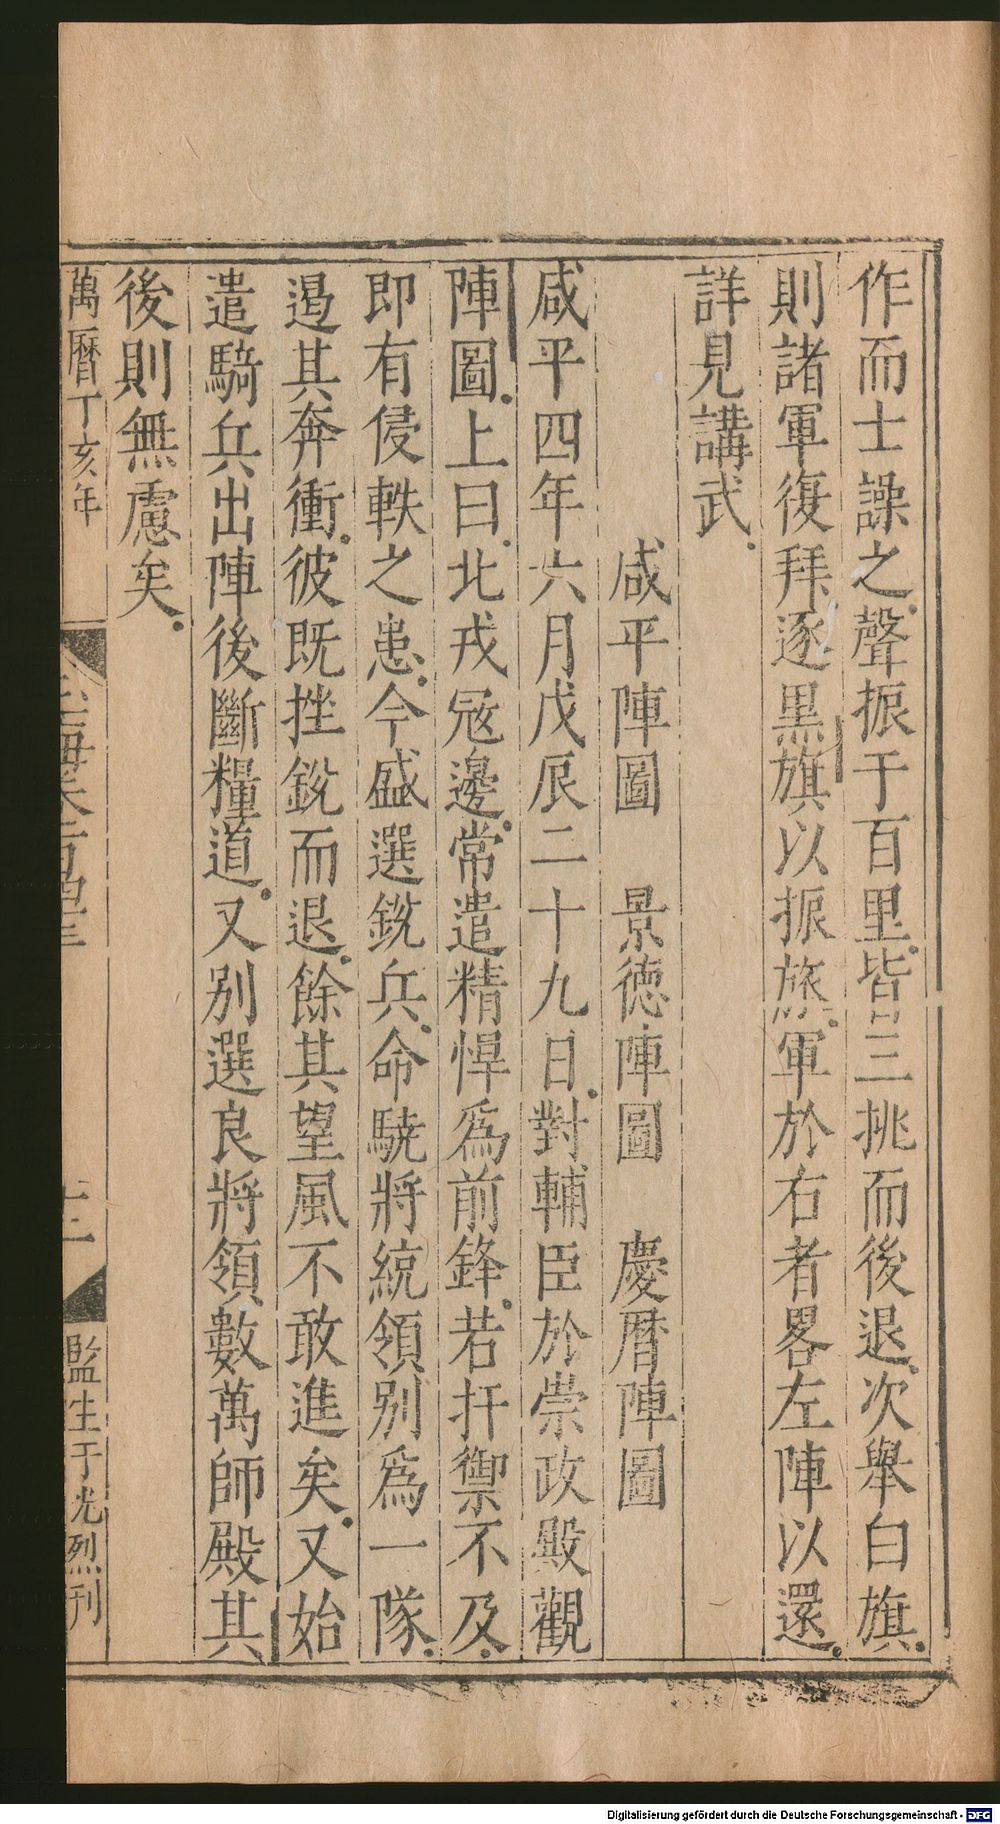 作而士譟之聲振于百里皆三挑而後退次舉白旗
則諸軍復拜逐黑旗以振旅軍於右者畧左陣以還
詳見講武
咸平陣圖　景徳陣圖　慶暦陣圖
咸平四年六月戊辰二十九日對輔臣於崇政殿觀
陣圖上曰北戎冦邊常遣精悍爲前鋒若扞禦不及
即有侵軼之患今盛選銳兵命驍將統領别爲一隊
遏其奔衝彼既挫銳而退餘其望風不敢進矣又始
遣騎兵出陣後斷糧道又别選良將領數萬師殿其
後則無慮矣
萬曆丁亥年
十二
監生于光烈刊
Digitalisierung gefördert durch die Deutsche Forschungsgemeinschaft - DFG